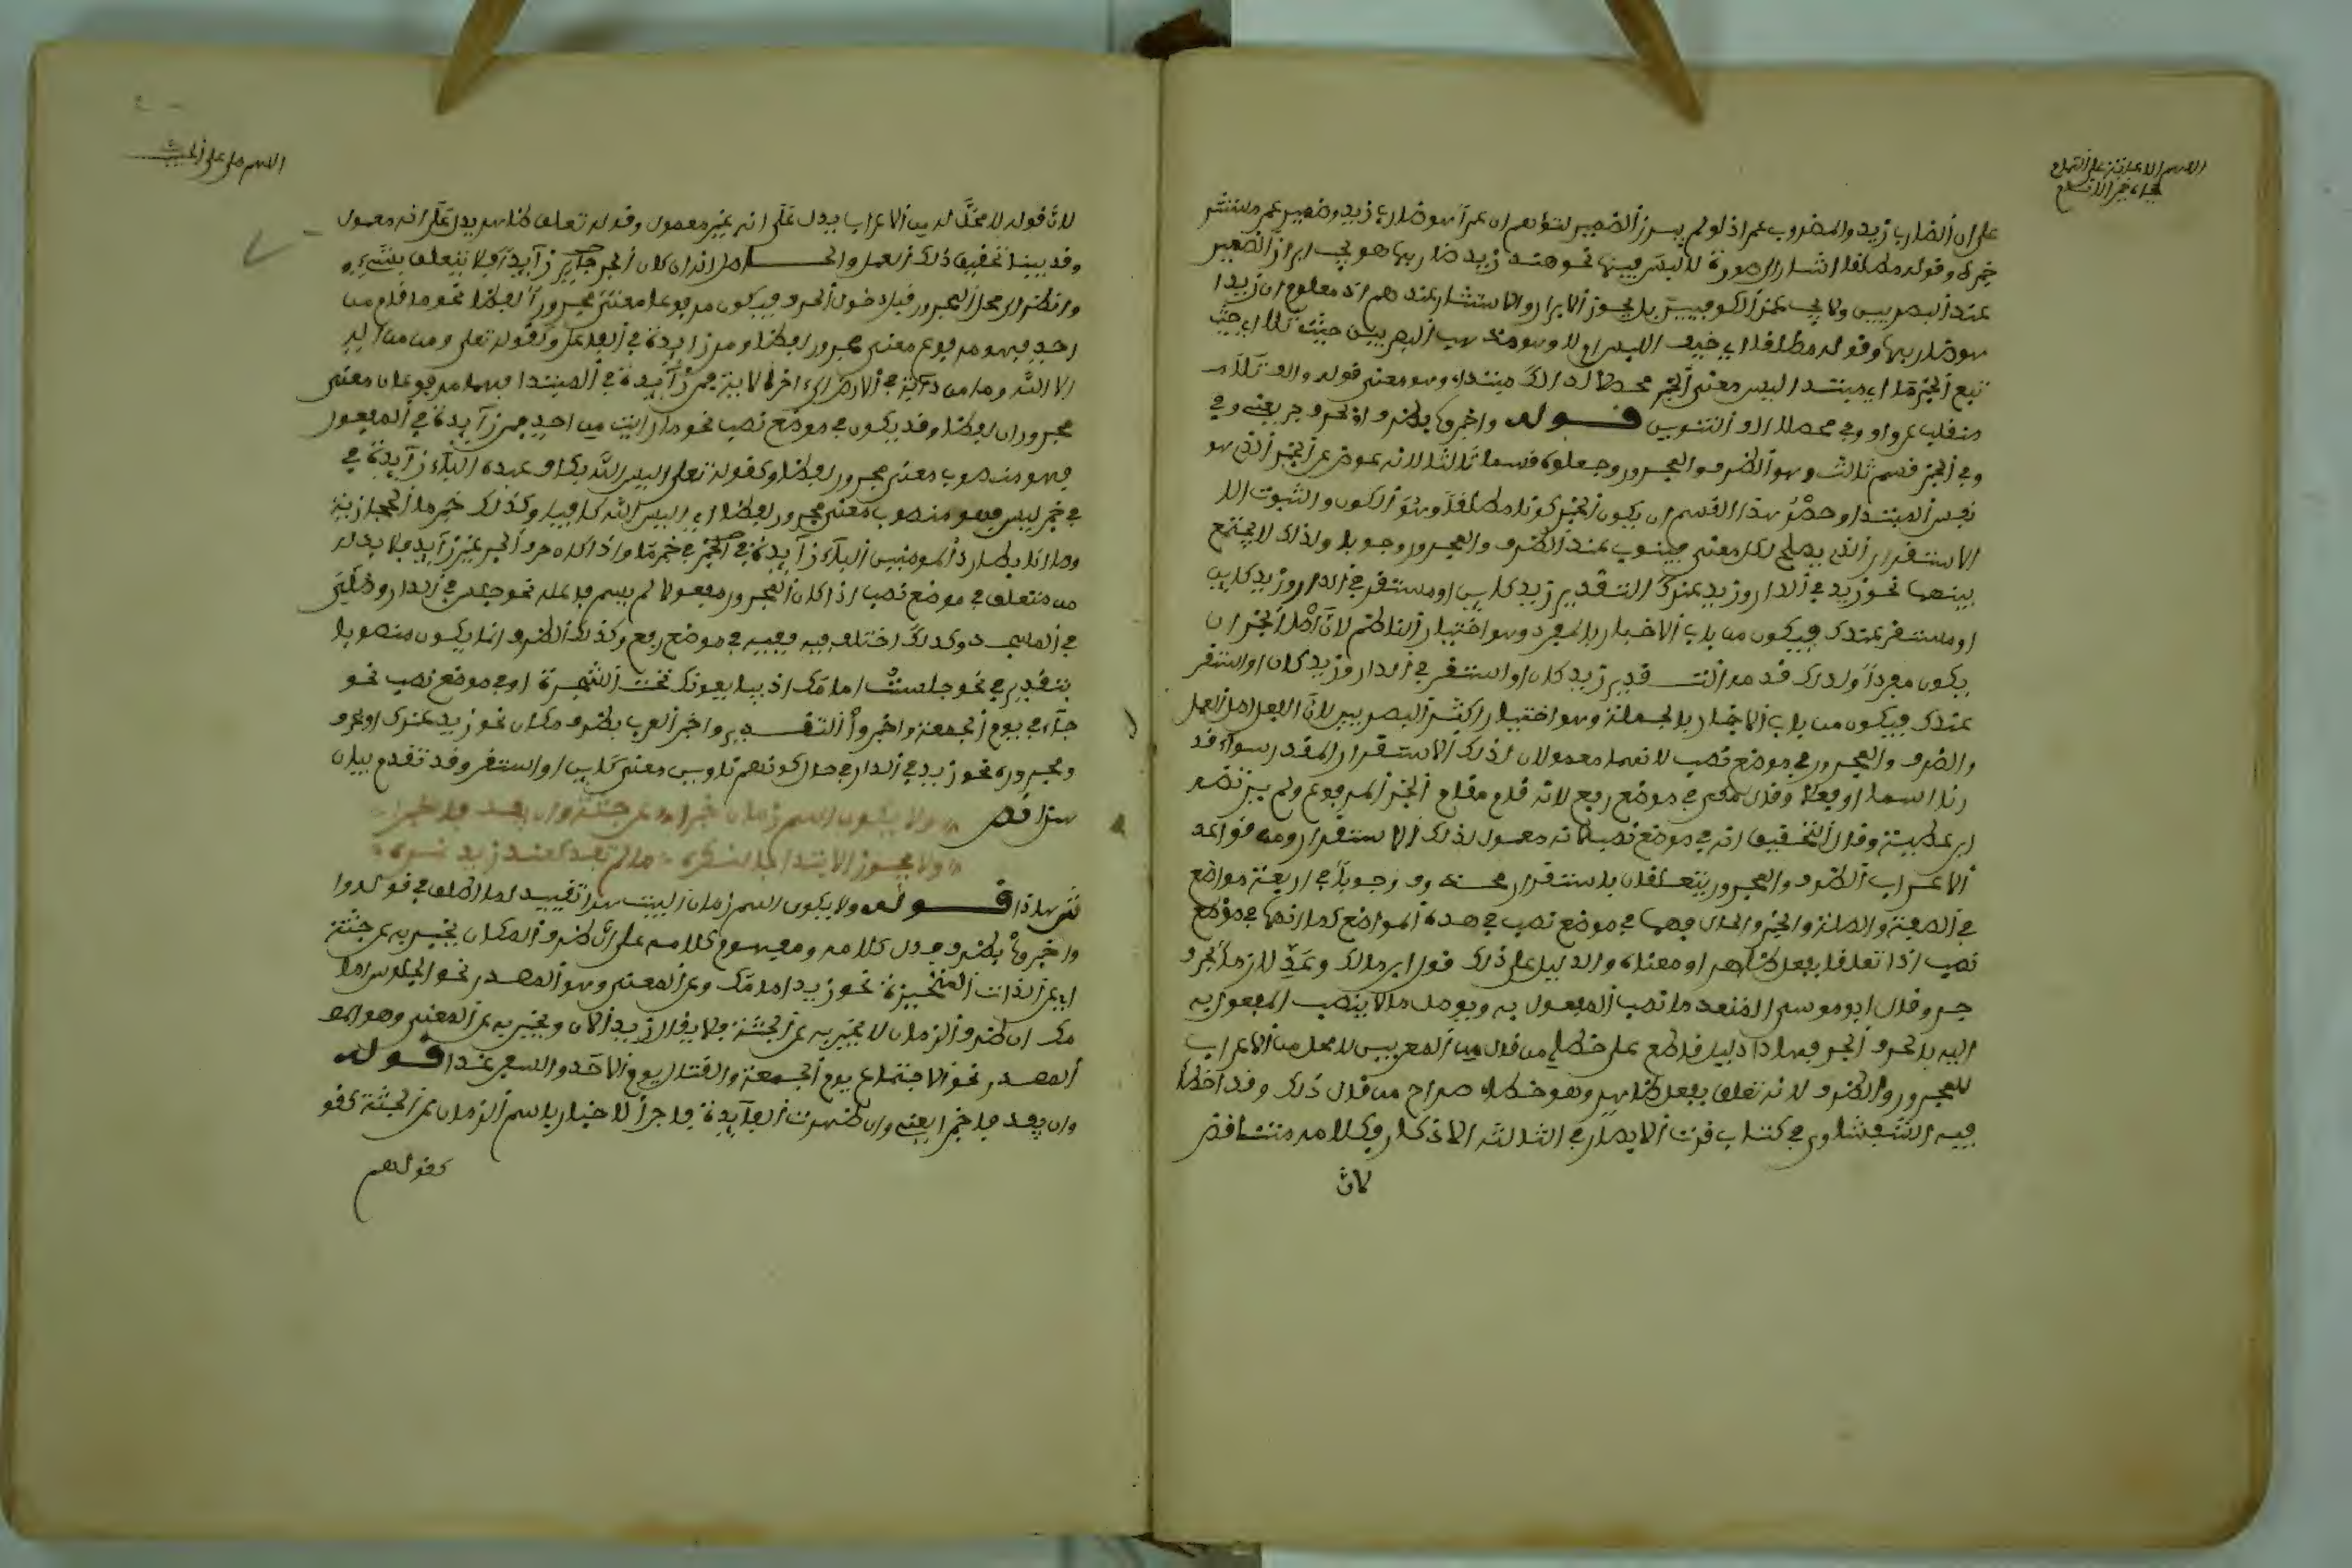 على ان الضارب زيد والمضروب عمر اذ لو لم يبرز الضمير لتوهم ان عمرا هو ضارب زيد وضمير عمر مستتر
خبره وقوله مطلقا اشار الى صورة لا لبس فيها نحو هند زيد ضاربها هو يجب ابراز الضمير
عند البصريين ولا يجب عند الكوفيين بل يجوز الابراز والاستتار عندهم اذ معلوم ان زيدا
هو ضاربها وقوله مطلقا اي خيف اللبس ام لا وهو مذهب البصريين حيث تلا اي حيث
تبع الخبر ما اي مبتدا ليس معنى الخبر محصلا لذلك مبتدا وهو معنى قوله والف تلا
منقلب عن واو وفي محصلا الف التنوين قوله واخبروا بظرف او بحرف جر يعني وفي
وفي الخبر قسم ثالث وهو الظرف والمجرور وجعلوه قسما ثالثا لانه عوض عن الخبر الذي هو
نفس المبتدا وحصر هذا القسم ان يكون الخبر كونا مطلقا وهو الكون والثبوت الا
الاستقرار الذي يصلح لكل معنى فينوب عنه الظرف والمجرور وجوبا ولذلك لا يجتمع
بينهما نحو زيد في الدار وزيد عندك التقدير زيد كاين او مستقر في الدار وزيد كاين
او مستقر عندك فيكون من باب الاخبار بالمفرد وهو اختيار الناظم لان اصل الخبر ان
يكون مفردا ولذلك قدم التقدير زيد كان او استقر في الدار وزيد كان او استقر
عندك فيكون من باب الاخبار بالجملة وهو اختيار اكثر البصريين لان الفعل اصل العمل
والظرف والمجرور في موضع نصب لانهما معمولان لذلك الاستقرار المقدر سواء قد
رنا اسما او فعلا وقال في موضع رفع لانه قام مقام الخبر المرفوع ولم يرتضه
ابن عطية وقال التحقيق انه في موضع نصب لانه معمول لذلك الاستقرار ومن قواعد
الاعراب الظرف والمجرور يتعلقان باستقرار محذوف وجوبا في اربعة مواضع
في الصفة والصلة والخبر والحال فهما في موضع نصب في هذه المواضع كما انهما في موضع
نصب اذا تعلقا بفعل ظاهر او معناه والدليل على ذلك قول ابن مالك وعد لازما بحرف
جر وقال ابو موسى المتعد ما نصب المفعول به ويوصل ما لا ينصب المفعول به
اليه بالحرف الجر فهذا دليل قاطع على خطا من قال من المعربين لا محل من الاعراب
للمجرور والظرف لانه تعلق بفعل ظاهر وهو خطا صراح من قال ذلك وقد اخطا
فيه الششاوي في كتاب قرت الابصار في الثلاثة الاذكار وكلامه متناقض
لان
لان قوله لا محل له من الاعراب يدل على انه غير معمول وقوله تعلق بظاهر يدل على انه معمول
وقد بينا تحقيق ذلك العمل والحاصل انه ان كان الجر جايز زآيد فلا يتعلق بشيء
وانظر الى محل المجرور قبل دخول الحرف فيكون مرفوعا معنى مجرورا لفظا نحو ما قام من
احد فهو مرفوع معنى مجرور لفظا ومن زايدة في الفاعل وكقوله تعلى وما من اله
الا الله وما من دآبة في الارض الى اخر الاية فمن زآيدة في المبتدا فهما مرفوعان معنى
مجروران لفظا وقد يكون في موضع نصب نحو ما رايت من احد فمن زآيدة في المفعول
فهو منصوب معنى مجرور لفظا وكقوله تعلى اليس الله بكاف عبده البآء زآيدة في
في خبر ليس فهو منصوب معنى مجرور لفظا اي اليس الله كافيا وكذلك خبر ما الحجازية
وما انا بطارد المومنين البآء زآيدة في الخبر في خبر ما واذا كان حرف الجر غير زآيد فلا بد له
من متعلق في موضع نصب اذا كان المجرور مفعولا لم يسم فاعله نحو جلس في الدار وصلي
في المسجد وكذلك اختلف فيه فقيل في موضع رفع وكذلك الظرف انما يكون منصوبا
بتقدير في نحو جلست امامك اذ يبايعونك تحت الشجرة او في موضع نصب نحو
جآء في يوم الجمعة واخبروا التقدير واخبر العرب بظرف مكان نحو زيد عندك او بحرف
ومجروره نحو زيد في الدار في حال كونهم ناوين معنى كاين او استقر وقد تقدم بيان
هذا ثم ولا يكون اسم زمان خبرا عن جثة وان يفد فاخبرا
ولا يجوز الابتدا بالنكره ما لم تفد كعند زيد نمره
قوله ولا يكون اسم زمان البيت هذا تقييد لما اطلق في قوله وا
واخبروا بظرف فدل كلامه ومفهوم كلامه على ان ظرف المكان يخبر به عن جثة
اي عن الذات المتحيزة نحو زيد امامك وعن المعنى وهو المصدر نحو الجلوس اما
مك ان ظرف الزمان لا يخبر به عن الجثة فلا يقال زيد الان ويخبر به عن المعنى وهو
المصدر نحو الاجتماع يوم الجمعة والقتال يوم الاحد والسفر غدا قوله
وان يفد فاخبرا يعني وان ظهرت الفآيدة فاجر الاخبار باسم الزمان عن الجثة كقو
كقولهم